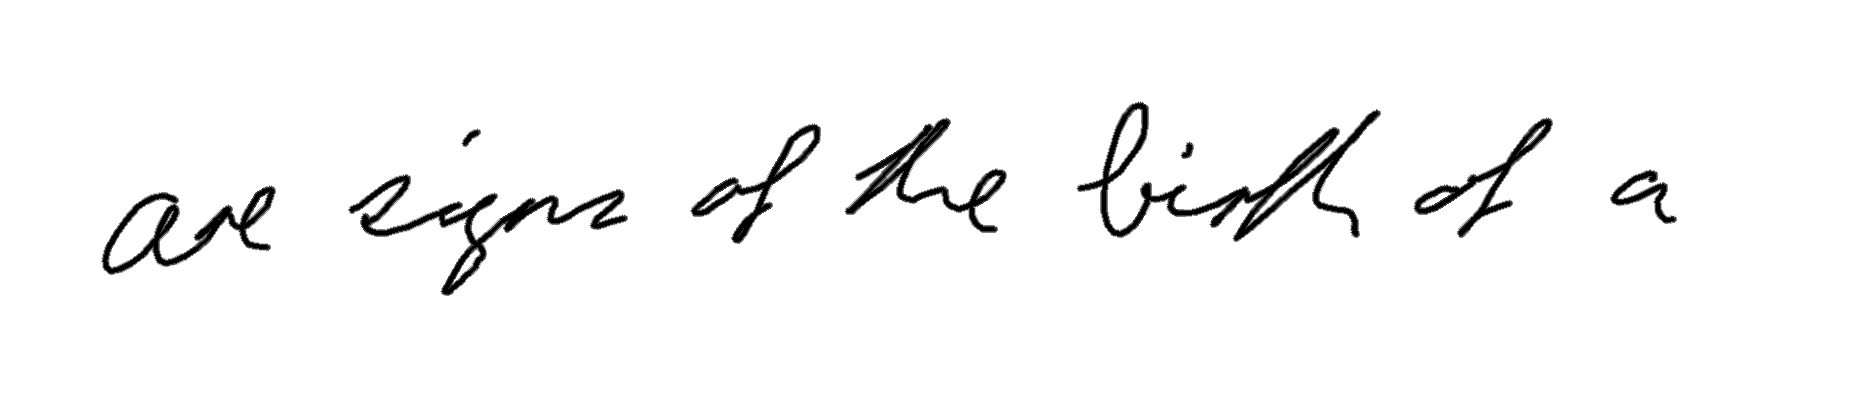 are signs of the birth of a